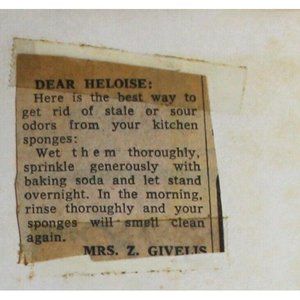 DEAR HELOISE:
Here is the best way to
get rid of stale or sour
odors from your kitchen
sponges:
Wet them thoroughly,
sprinkle generously with
baking soda and let stand
overnight. In the morning,
rinse thoroughly and your
sponges will smell clean
again.
MRS. Z. GIVELIS